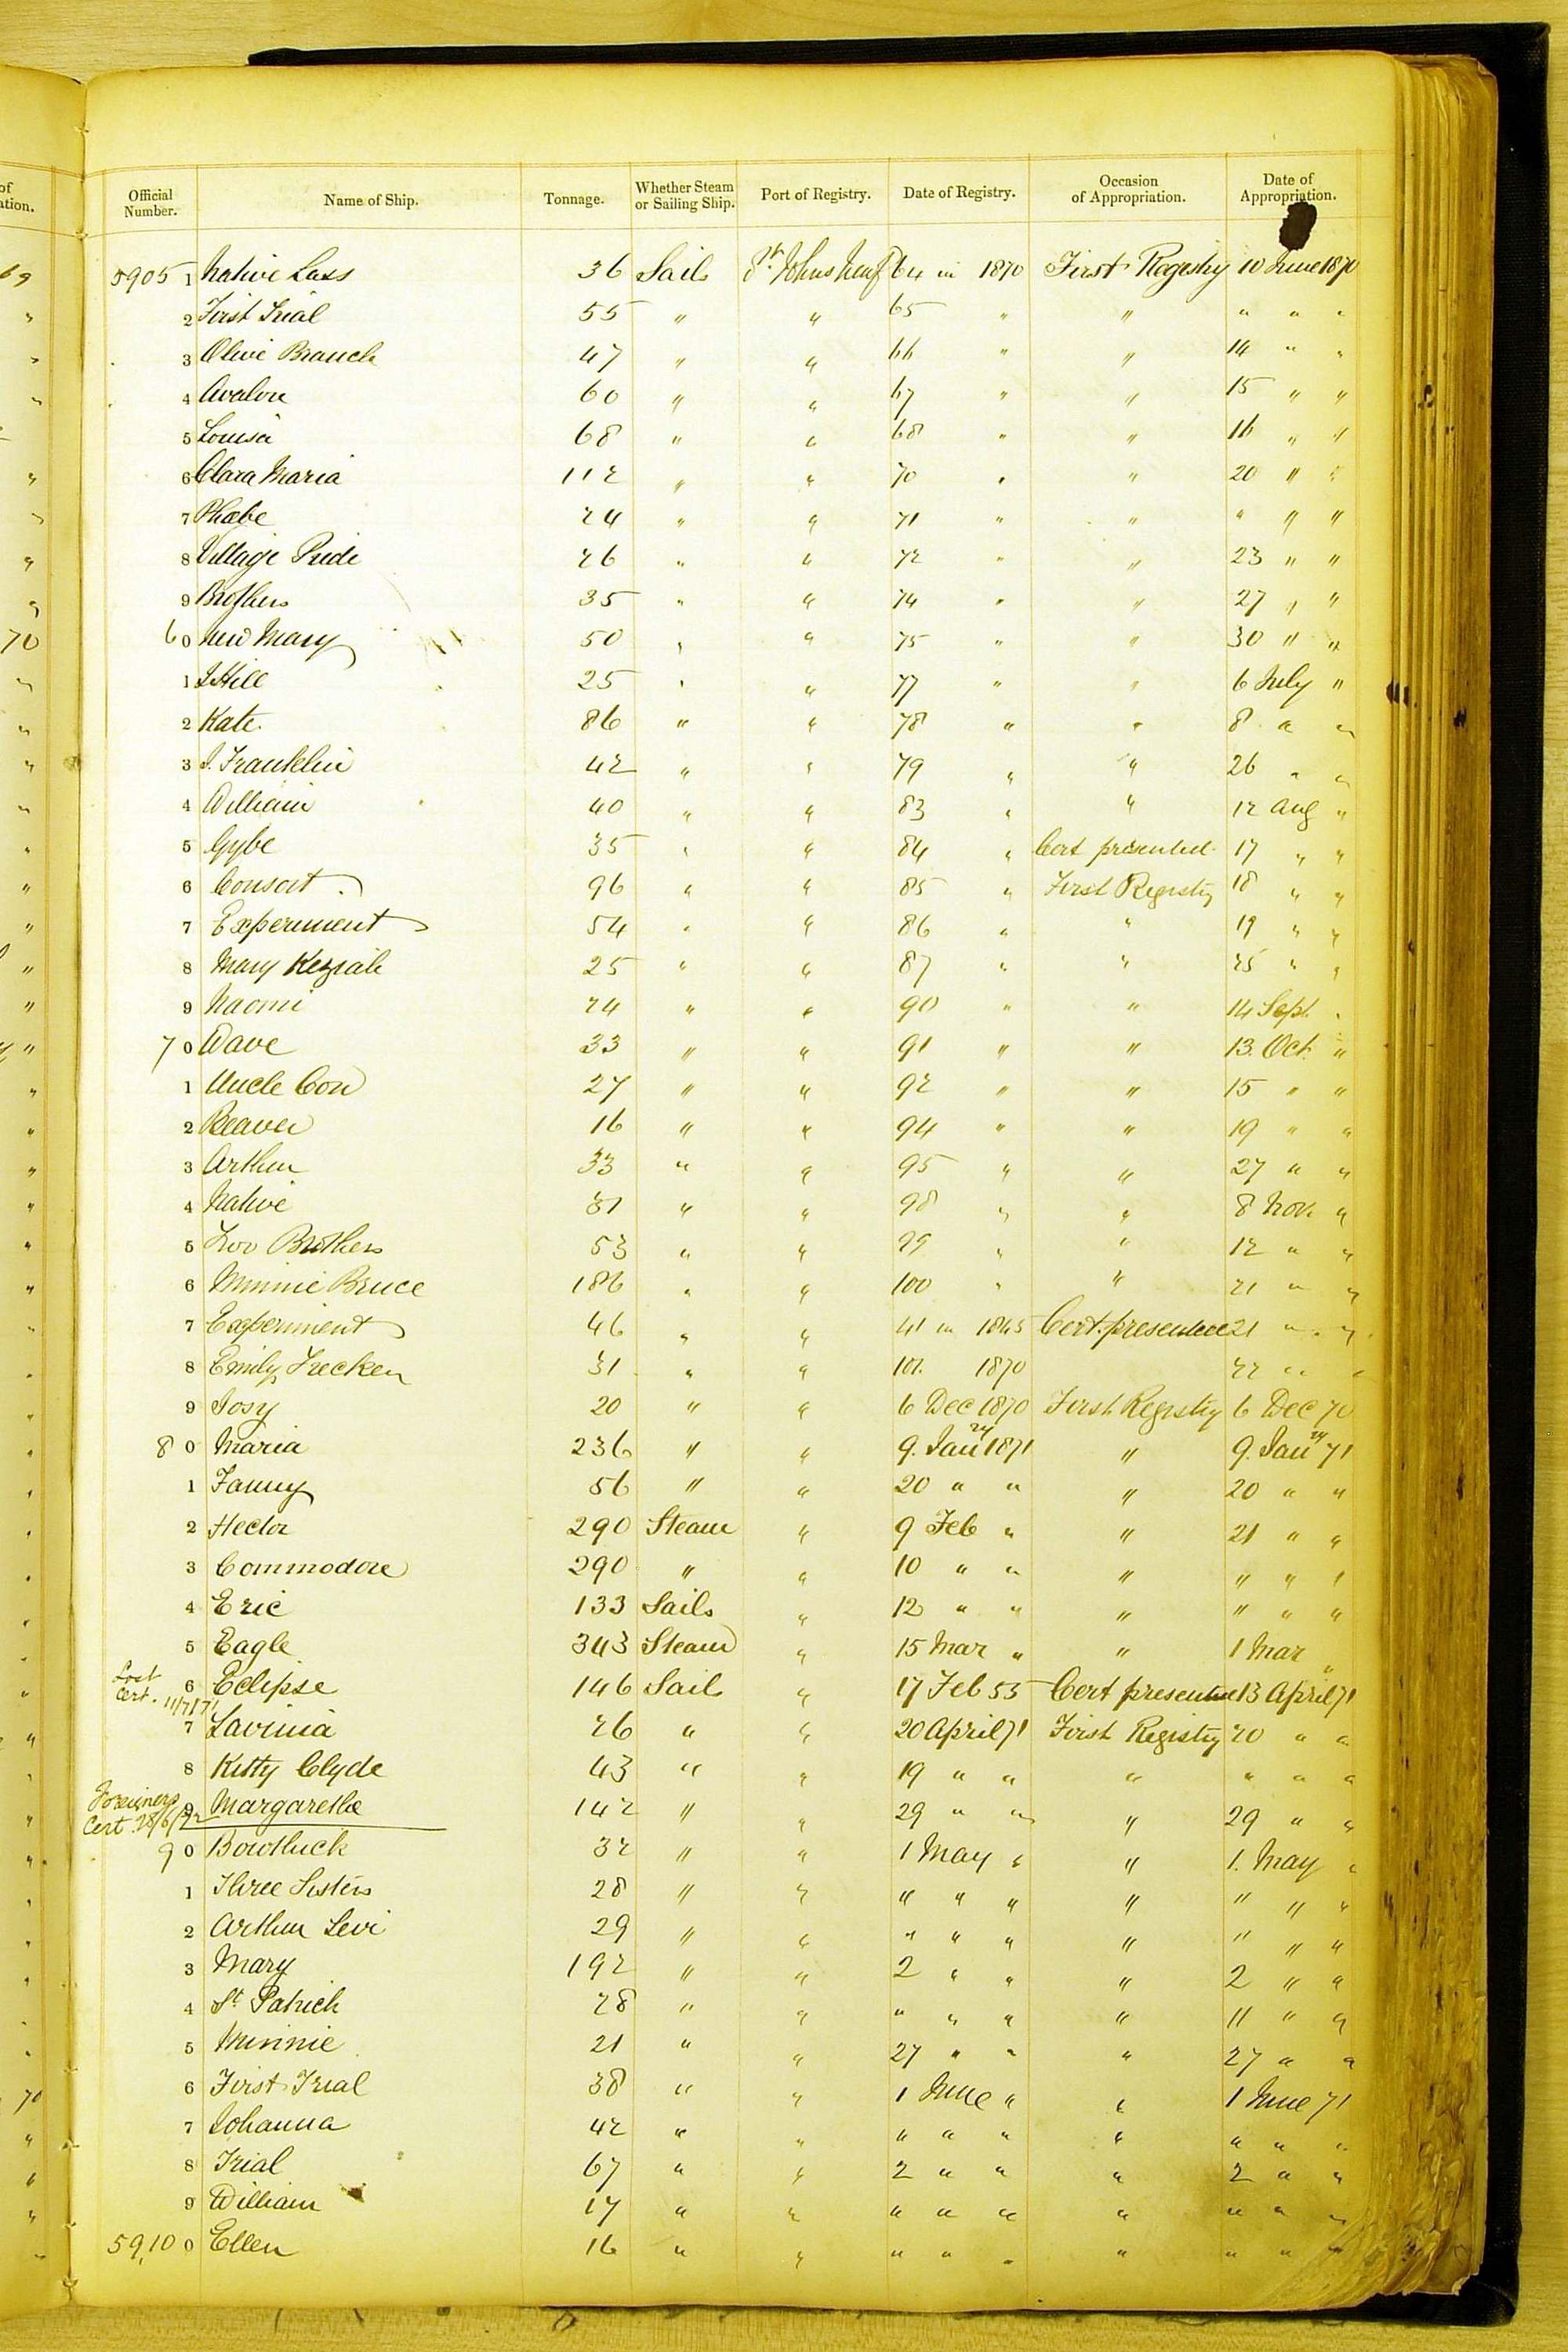 Official Number. Name of Ship. Tonnage. Whether Steam or Sailing Ship. Port of Registry. Date of Registry. Occasion of Appropriation. Date of Appropriation.
5905 1 Native Lass 36 Sails St. Johns Newf 64 in 1870 First Registry 10 June 1870
2 First Trial 55 " " 65 " " " " "
3 Olive Branch 47 " " 66 " " 14 " "
4 Avalon 60 " " 67 " " 15 " "
5 Louisa 68 " " 68 " " 16 " "
6 Clara Maria 112 " " 70 " " 20 " "
7 Phœbe 24 " " 71 " " " " "
8 Village Pride 26 " " 72 " " 23 " "
9 Brothers 35 " " 74 " " 27 " "
60 New Mary 50 " " 75 " " 30 " "
1 Hill 25 " " 77 " " 6 July "
2 Kate 86 " " 78 " " 8 " "
3 J. Franklin 42 " " 79 " " 26 " "
4 William 40 " " 83 " " 12 Aug "
5 Gybe 35 " " 84 " Cert presented 17 " "
6 Consort 96 " " 85 " First Registry 18 " "
7 Experiment 54 " " 86 " " 19 " "
8 Mary Keziah 25 " " 87 " " 25 " "
9 Naomi 24 " " 90 " " 14 Sept. "
70 Wave 33 " " 91 " " 13. Oct. "
1 Uncle Con 27 " " 92 " " 15 " "
2 Beaver 16 " " 94 " " 19 " "
3 Arthur 33 " " 95 " " 27 " "
4 Native 31 " " 98 " " 8 Nov. "
5 Two Brothers 53 " " 99 " " 12 " "
6 Minnie Bruce 186 " " 100 " " 21 " "
7 Experiment 46 " " 41 in 1845 Cert. presented 21 " "
8 Emily Trecken 31 " " 101. 1870 22 " "
9 Josy 20 " " 6 Dec 1870 First Registry 6 Dec 70
80 Maria 236 " " 9. Jany 1871 " 9. Jany 71
1 Fanny 56 " " 20 " " " 20 " "
2 Hector 290 Steam " 9 Feb " " 21 " "
3 Commodore 290 " " 10 " " " " " "
4 Eric 133 Sails " 12 " " " " " "
5 Eagle 343 Steam " 15 Mar " " 1 Mar "
Lost Cert. 11/7/71
6 Eclipse 146 Sail " 17 Feb 55 Cert presented 13 April 71
7 Lavinia 26 " " 20 April 71 First Registry 20 " "
8 Kitty Clyde 43 " " 19 " " " " " "
Foreigners Cert. 28/6/72
9 Margarethe 142 " " 29 " " " 29 " "
90 Bowtluck 32 " " 1 May " " 1. May "
1 Three Sisters 28 " " " " " " " " "
2 Arthur Levi 29 " " " " " " " " "
3 Mary 192 " " 2 " " " 2 " "
4 St Patrick 28 " " " " " " 11 " "
5 Minnie 21 " " 27 " " " 27 " "
6 First Trial 38 " " 1 June " " 1 June 71
7 Johanna 42 " " " " " " " " "
8 Trial 67 " " 2 " " " 2 " "
9 William 17 " " " " " " " " "
59,10 0 Ellen 16 " " " " " " " " "